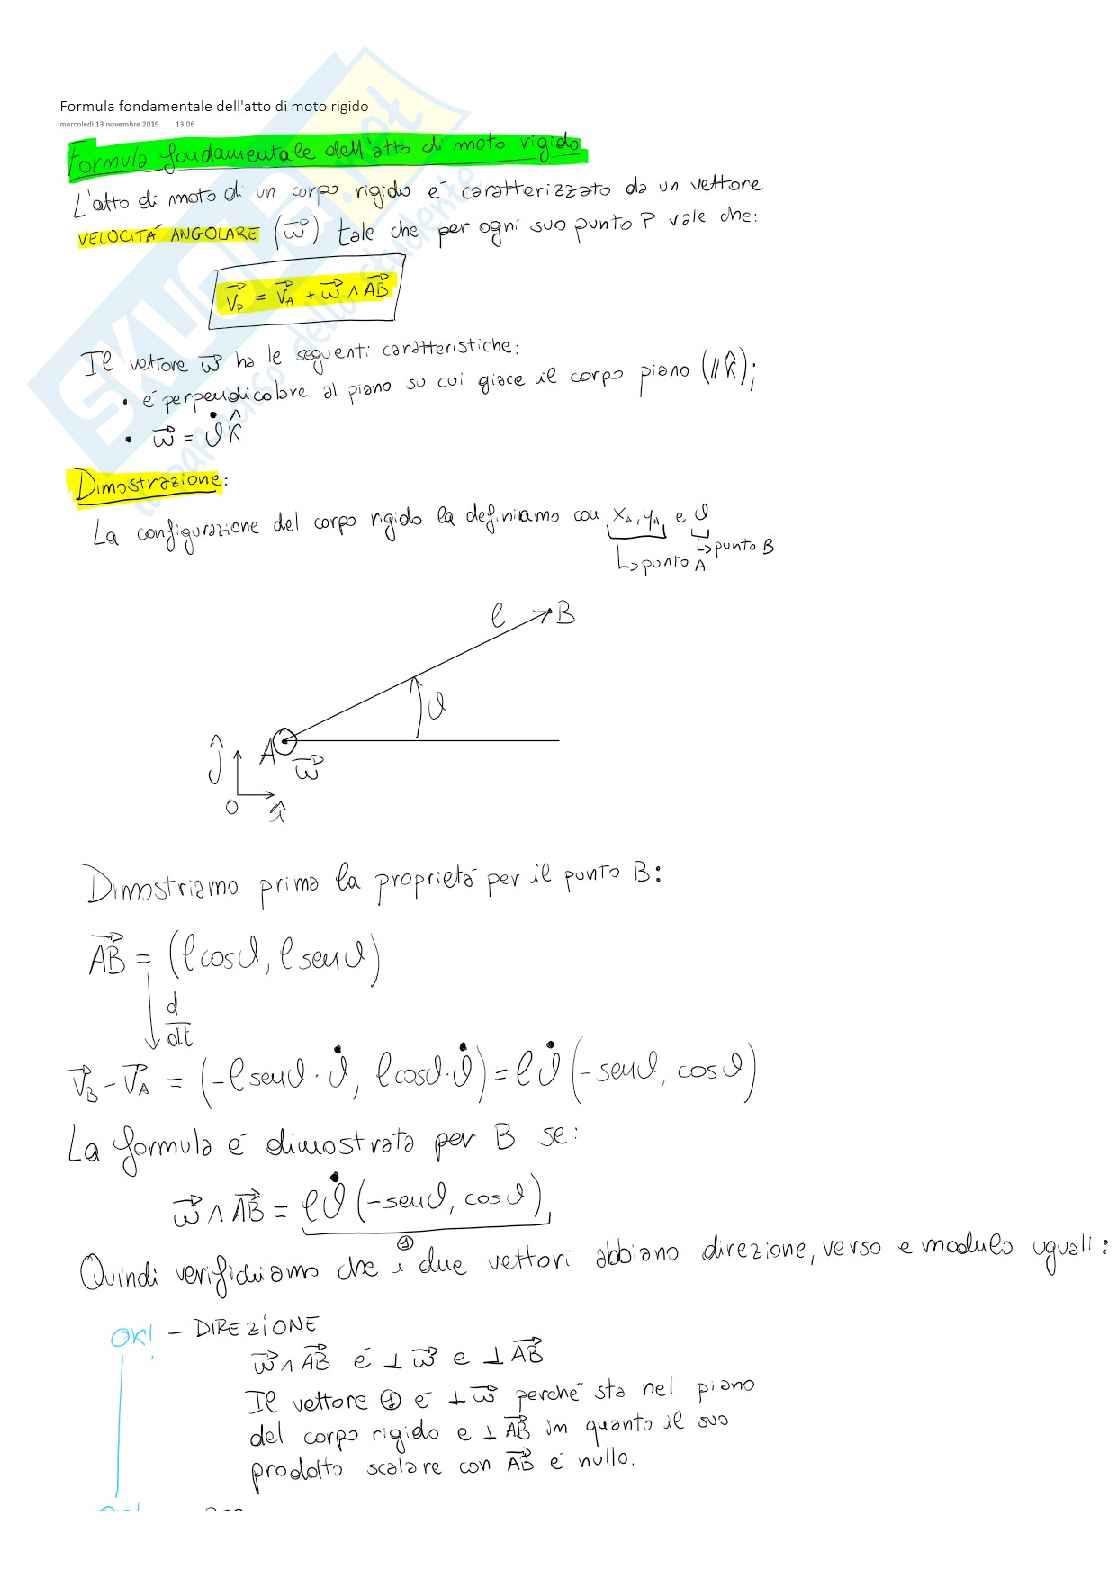 Formula fondamentale dell'atto di moto rigido
mercoledì 13 novembre 2019 13:06
Formula fondamentale dell'atto di moto rigido
L'atto di moto di un corpo rigido é caratterizzato da un vettore
VELOCITÁ ANGOLARE (ω⃗) tale che per ogni suo punto P vale che:
V⃗P = V⃗A + ω⃗ ∧ AB⃗
Il vettore ω⃗ ha le seguenti caratteristiche:
• é perpendicolare al piano su cui giace il corpo piano (// k̂);
• ω⃗ = ϑ̇ k̂
Dimostrazione:
La configurazione del corpo rigido la definiamo con xA, yA e ϑ
↳ punto A → punto B
ℓ B
ϑ
A
ω⃗
ĵ
O î
Dimostriamo prima la proprietá per il punto B:
AB⃗ = (ℓ cosϑ, ℓ senϑ)
d
dt
V⃗B - V⃗A = (-ℓ senϑ · ϑ̇, ℓ cosϑ · ϑ̇) = ℓ ϑ̇ (-senϑ, cosϑ)
La formula é dimostrata per B se:
ω⃗ ∧ AB⃗ = ℓ ϑ̇ (-senϑ, cosϑ)
①
Quindi verifichiamo che i due vettori abbiano direzione, verso e modulo uguali:
OK! - DIREZIONE
ω⃗ ∧ AB⃗ é ⊥ ω⃗ e ⊥ AB⃗
Il vettore ① é ⊥ ω⃗ perché sta nel piano
del corpo rigido e ⊥ AB⃗ in quanto il suo
prodotto scalare con AB⃗ é nullo.